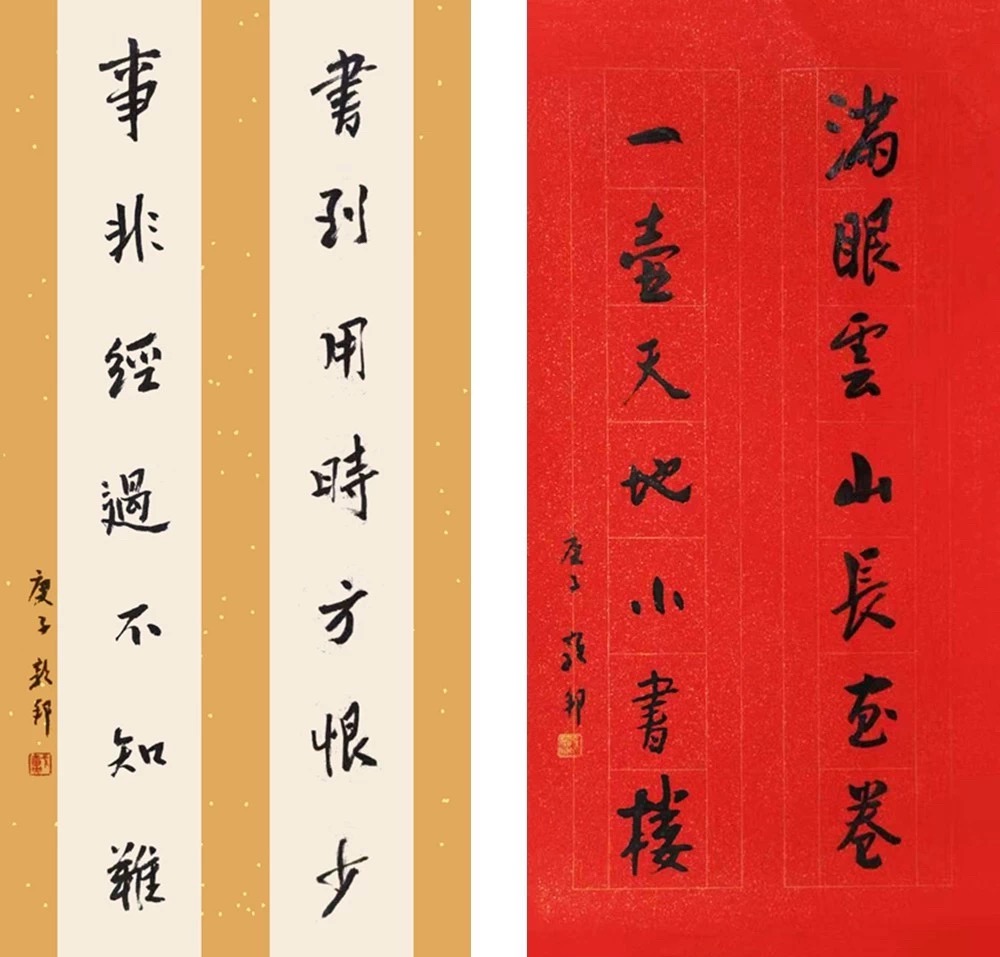 書到用時方恨少
事非經過不知難
庚子
邦
滿眼雲山長畫卷
一壺天地小書樓
庚子
邦